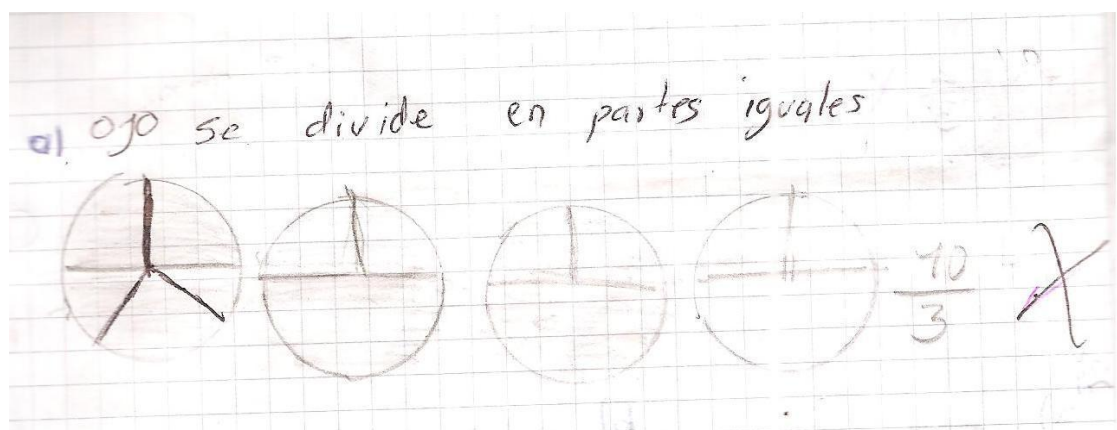 a) ojo se divide en partes iguales
10
3